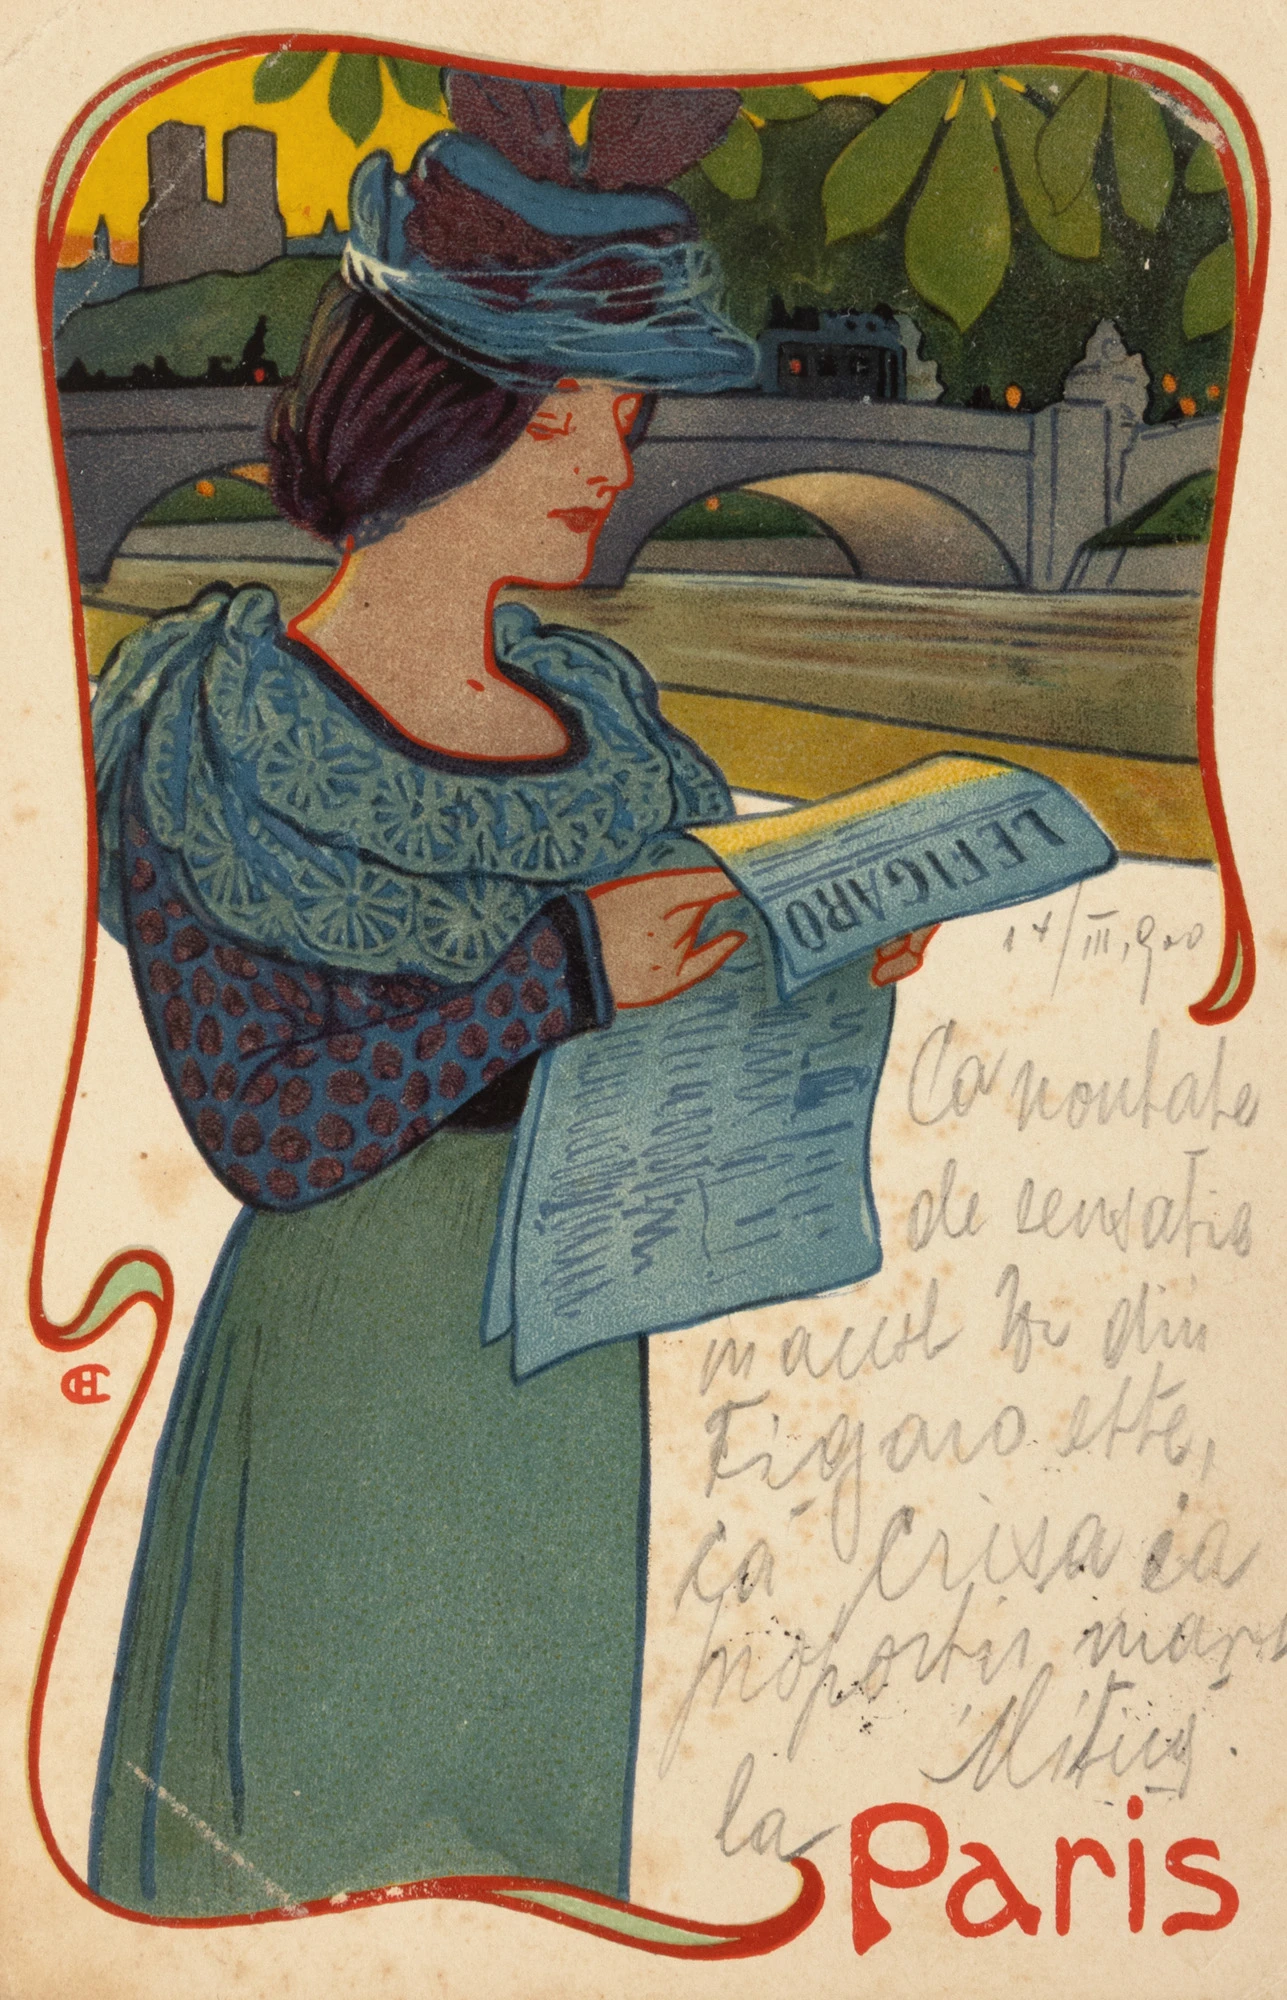 LE FIGARO
14/III, 900
Ca noutate
de sensatie
in acest No din
Figaro este,
că Crisa ia
proportii mari
la Paris
CH